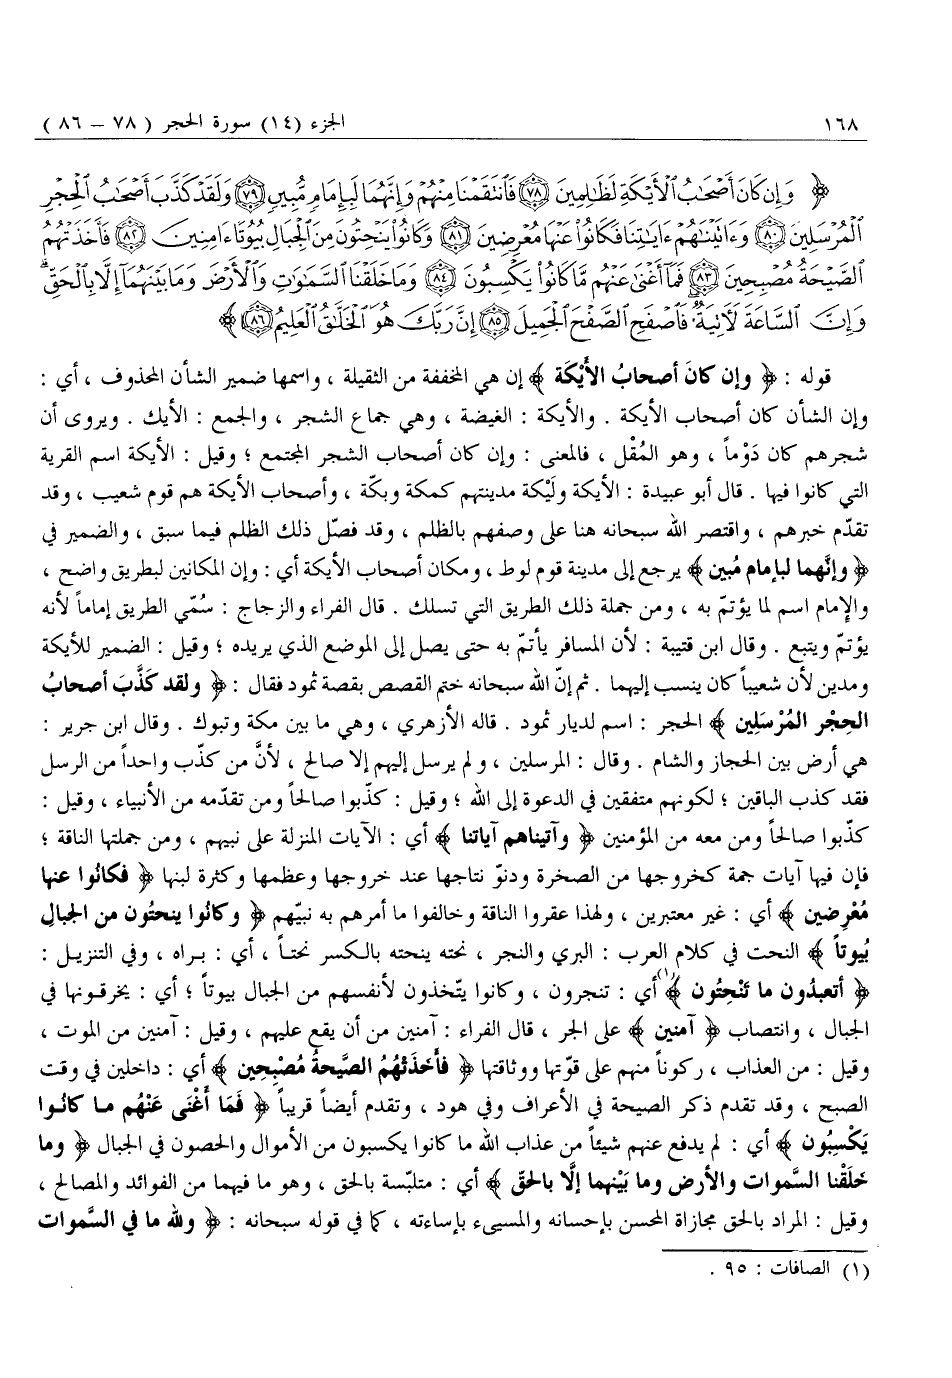 ١٦٨ الجزء (١٤) سورة الحجر ( ٧٨ – ٨٦ )
﴿ وَإِن كَانَ أَصْحَٰبُ ٱلْأَيْكَةِ لَظَٰلِمِينَ ﴿٧٨﴾ فَٱنتَقَمْنَا مِنْهُمْ وَإِنَّهُمَا لَبِإِمَامٍ مُّبِينٍ ﴿٧٩﴾ وَلَقَدْ كَذَّبَ أَصْحَٰبُ ٱلْحِجْرِ
ٱلْمُرْسَلِينَ ﴿٨٠﴾ وَءَاتَيْنَٰهُمْ ءَايَٰتِنَا فَكَانُوا۟ عَنْهَا مُعْرِضِينَ ﴿٨١﴾ وَكَانُوا۟ يَنْحِتُونَ مِنَ ٱلْجِبَالِ بُيُوتًا ءَامِنِينَ ﴿٨٢﴾ فَأَخَذَتْهُمُ
ٱلصَّيْحَةُ مُصْبِحِينَ ﴿٨٣﴾ فَمَآ أَغْنَىٰ عَنْهُم مَّا كَانُوا۟ يَكْسِبُونَ ﴿٨٤﴾ وَمَا خَلَقْنَا ٱلسَّمَٰوَٰتِ وَٱلْأَرْضَ وَمَا بَيْنَهُمَآ إِلَّا بِٱلْحَقِّ ۗ
وَإِنَّ ٱلسَّاعَةَ لَءَاتِيَةٌ ۖ فَٱصْفَحِ ٱلصَّفْحَ ٱلْجَمِيلَ ﴿٨٥﴾ إِنَّ رَبَّكَ هُوَ ٱلْخَلَّٰقُ ٱلْعَلِيمُ ﴿٨٦﴾ ﴾
قوله : ﴿ وإن كانَ أصحابُ الأَيْكَة ﴾ إن هي المخففة من الثقيلة ، واسمها ضمير الشأن المحذوف ، أي :
وإن الشأن كان أصحاب الأيكة . والأيكة : الغيضة ، وهي جماع الشجر ، والجمع : الأيك . ويروى أن
شجرهم كان دَوْماً ، وهو المُقْل ، فالمعنى : وإن كان أصحاب الشجر المجتمع ؛ وقيل : الأيكة اسم القرية
التي كانوا فيها . قال أبو عبيدة : الأيكة ولَيْكة مدينتهم كمكة وبكّة ، وأصحاب الأيكة هم قوم شعيب ، وقد
تقدّم خبرهم ، واقتصر الله سبحانه هنا على وصفهم بالظلم ، وقد فصّل ذلك الظلم فيما سبق ، والضمير في
﴿ وإنَّهما لبإمام مُبين ﴾ يرجع إلى مدينة قوم لوط ، ومكان أصحاب الأيكة أي : وإن المكانين لبطريق واضح ،
والإمام اسم لما يؤتمّ به ، ومن جملة ذلك الطريق التي تسلك . قال الفراء والزجاج : سُمّي الطريق إماماً لأنه
يؤتمّ ويتبع . وقال ابن قتيبة : لأن المسافر يأتمّ به حتى يصل إلى الموضع الذي يريده ؛ وقيل : الضمير للأيكة
ومدين لأن شعيباً كان ينسب إليهما . ثم إنّ الله سبحانه ختم القصص بقصة ثمود فقال : ﴿ ولقد كَذَّبَ أصحابُ
الحِجْر المُرْسَلِين ﴾ الحجر : اسم لديار ثمود . قاله الأزهري ، وهي ما بين مكة وتبوك . وقال ابن جرير :
هي أرض بين الحجاز والشام . وقال : المرسلين ، ولم يرسل إليهم إلا صالح ، لأنَّ من كذّب واحداً من الرسل
فقد كذب الباقين ؛ لكونهم متفقين في الدعوة إلى الله ؛ وقيل : كذّبوا صالحاً ومن تقدّمه من الأنبياء ، وقيل :
كذّبوا صالحاً ومن معه من المؤمنين ﴿ وآتيناهم آياتنا ﴾ أي : الآيات المنزلة على نبيهم ، ومن جملتها الناقة ؛
فإن فيها آيات جمة كخروجها من الصخرة ودنوّ نتاجها عند خروجها وعظمها وكثرة لبنها ﴿ فكانُوا عنها
مُعْرِضين ﴾ أي : غير معتبرين ، ولهذا عقروا الناقة وخالفوا ما أمرهم به نبيّهم ﴿ وكانُوا ينحتُون من الجبالِ
بُيوتاً ﴾ النحت في كلام العرب : البري والنجر ، نحته ينحته بالكسر نحتاً ، أي : براه ، وفي التنزيل :
﴿ أتعبدُون ما تَنْحِتُون ﴾(١) أي : تنجرون ، وكانوا يتّخذون لأنفسهم من الجبال بيوتاً ؛ أي : يخرقونها في
الجبال ، وانتصاب ﴿ آمنين ﴾ على الجر ، قال الفراء : آمنين من أن يقع عليهم ، وقيل : آمنين من الموت ،
وقيل : من العذاب ، ركوناً منهم على قوّتها ووثاقتها ﴿ فأَخَذَتْهُمُ الصَّيحةُ مُصْبِحين ﴾ أي : داخلين في وقت
الصبح ، وقد تقدم ذكر الصيحة في الأعراف وفي هود ، وتقدم أيضاً قريباً ﴿ فَمَا أَغْنَى عَنْهُم ما كانُوا
يَكْسِبُون ﴾ أي : لم يدفع عنهم شيئاً من عذاب الله ما كانوا يكسبون من الأموال والحصون في الجبال ﴿ وما
خَلَقْنا السَّموات والأرض وما بَيْنهما إلَّا بالحقّ ﴾ أي : متلبّسة بالحق ، وهو ما فيهما من الفوائد والمصالح ،
وقيل : المراد بالحق مجازاة المحسن بإحسانه والمسيىء بإساءته ، كما في قوله سبحانه : ﴿ ولله ما في السَّموات
(١) الصافات : ٩٥ .